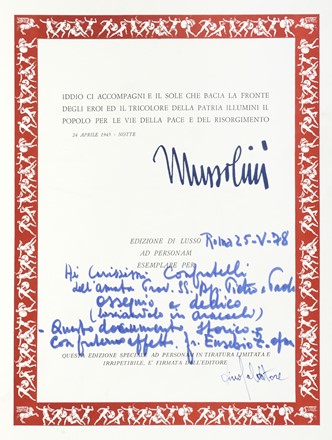 IDDIO CI ACCOMPAGNI E IL SOLE CHE BACIA LA FRONTE
DEGLI EROI ED IL TRICOLORE DELLA PATRIA ILLUMINI IL
POPOLO PER LE VIE DELLA PACE E DEL RISORGIMENTO
24 APRILE 1945 - NOTTE
Mussolini
EDIZIONE DI LUSSO Roma 25-V-78
AD PERSONAM
ESEMPLARE PER
Ai carissimi Confratelli
dell'amata Prov. SS. App. Pietro e Paolo
ossequio e dedico
in
- Questo documento storico -
Con fraterno affetto. fr. Eusebio Z. ofm
QUESTA EDIZIONE SPECIALE AD PERSONAM IN TIRATURA LIMITATA E
IRRIPETIBILE, E' FIRMATA DALL'EDITORE.